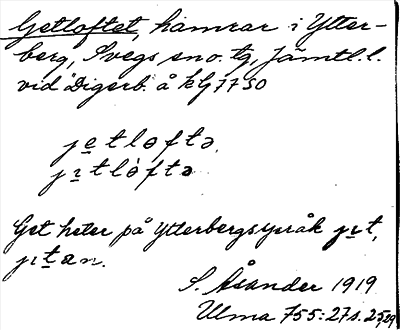 Getloftet, hamrar i Ytter-
berg, Svegs sno. tg, Jämtl. l.
vid Digerb. å kG 7750
jetlɵftə.
jɪtlɵ̀ftə
Get heter på Ytterbergsspråk jɪt,
jɪtæn.
S. Åsander 1919
Ulma 755:27 s. 25,29